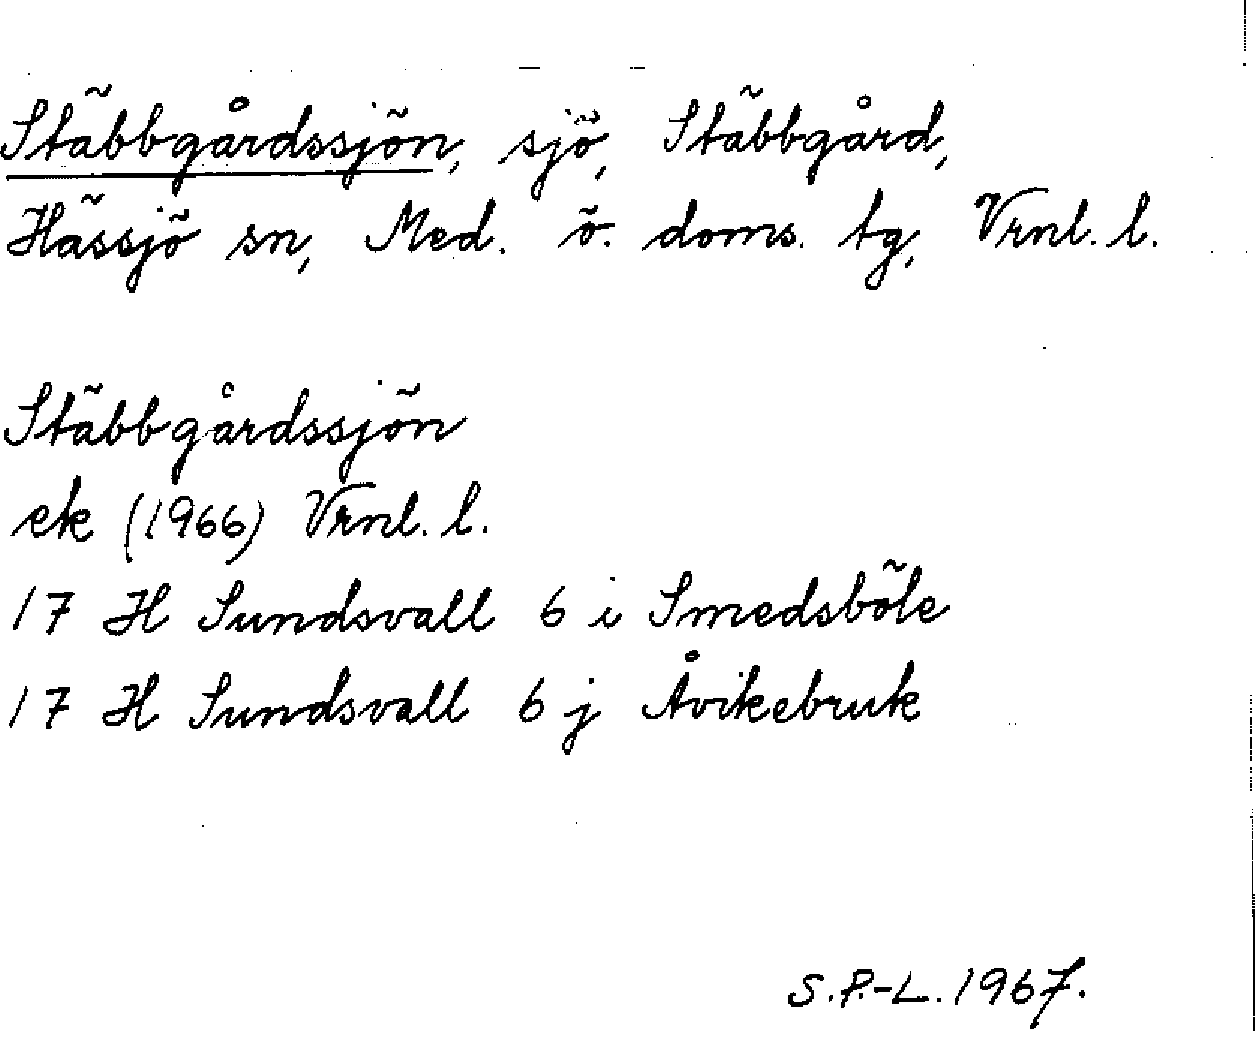 Stäbbgårdssjön, sjö, Stäbbgård,
Hässjö sn, Med. ö. doms. tg, Vrnl. l.
Stäbbgårdssjön
ek (1966) Vrnl. l.
17 H Sundsvall 6 i Smedsböle
17 H Sundsvall 6 j Åvikebruk
S.P.-L. 1967.